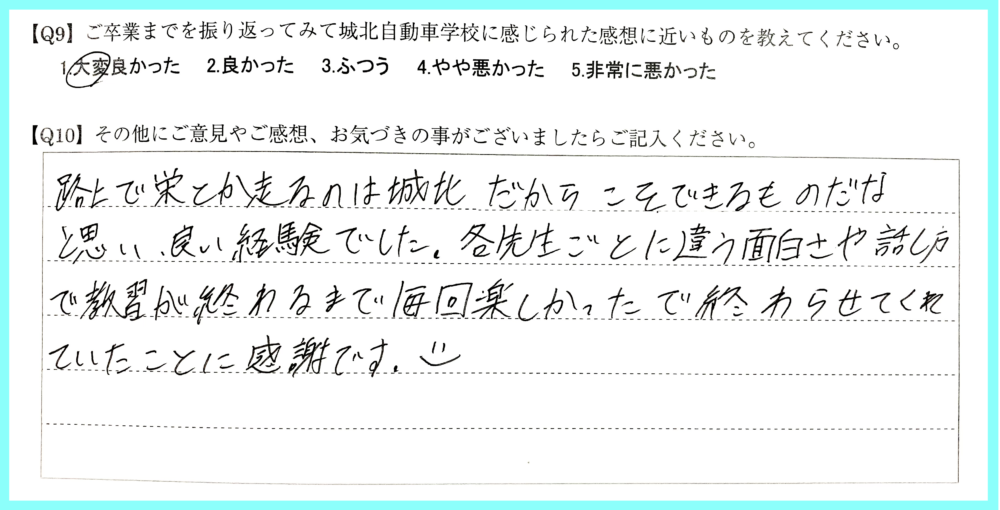 【Q9】ご卒業までを振り返ってみて城北自動車学校に感じられた感想に近いものを教えてください。
1.大変良かった 2.良かった 3.ふつう 4.やや悪かった 5.非常に悪かった
【Q10】その他にご意見やご感想、お気づきの事がございましたらご記入ください。
路上で栄とか走るのは城北だからこそできるものだな
と思い、良い経験でした。各先生ごとに違う面白さや話し方
で教習が終わるまで毎回楽しかったで終わらせてくれ
ていたことに感謝です。